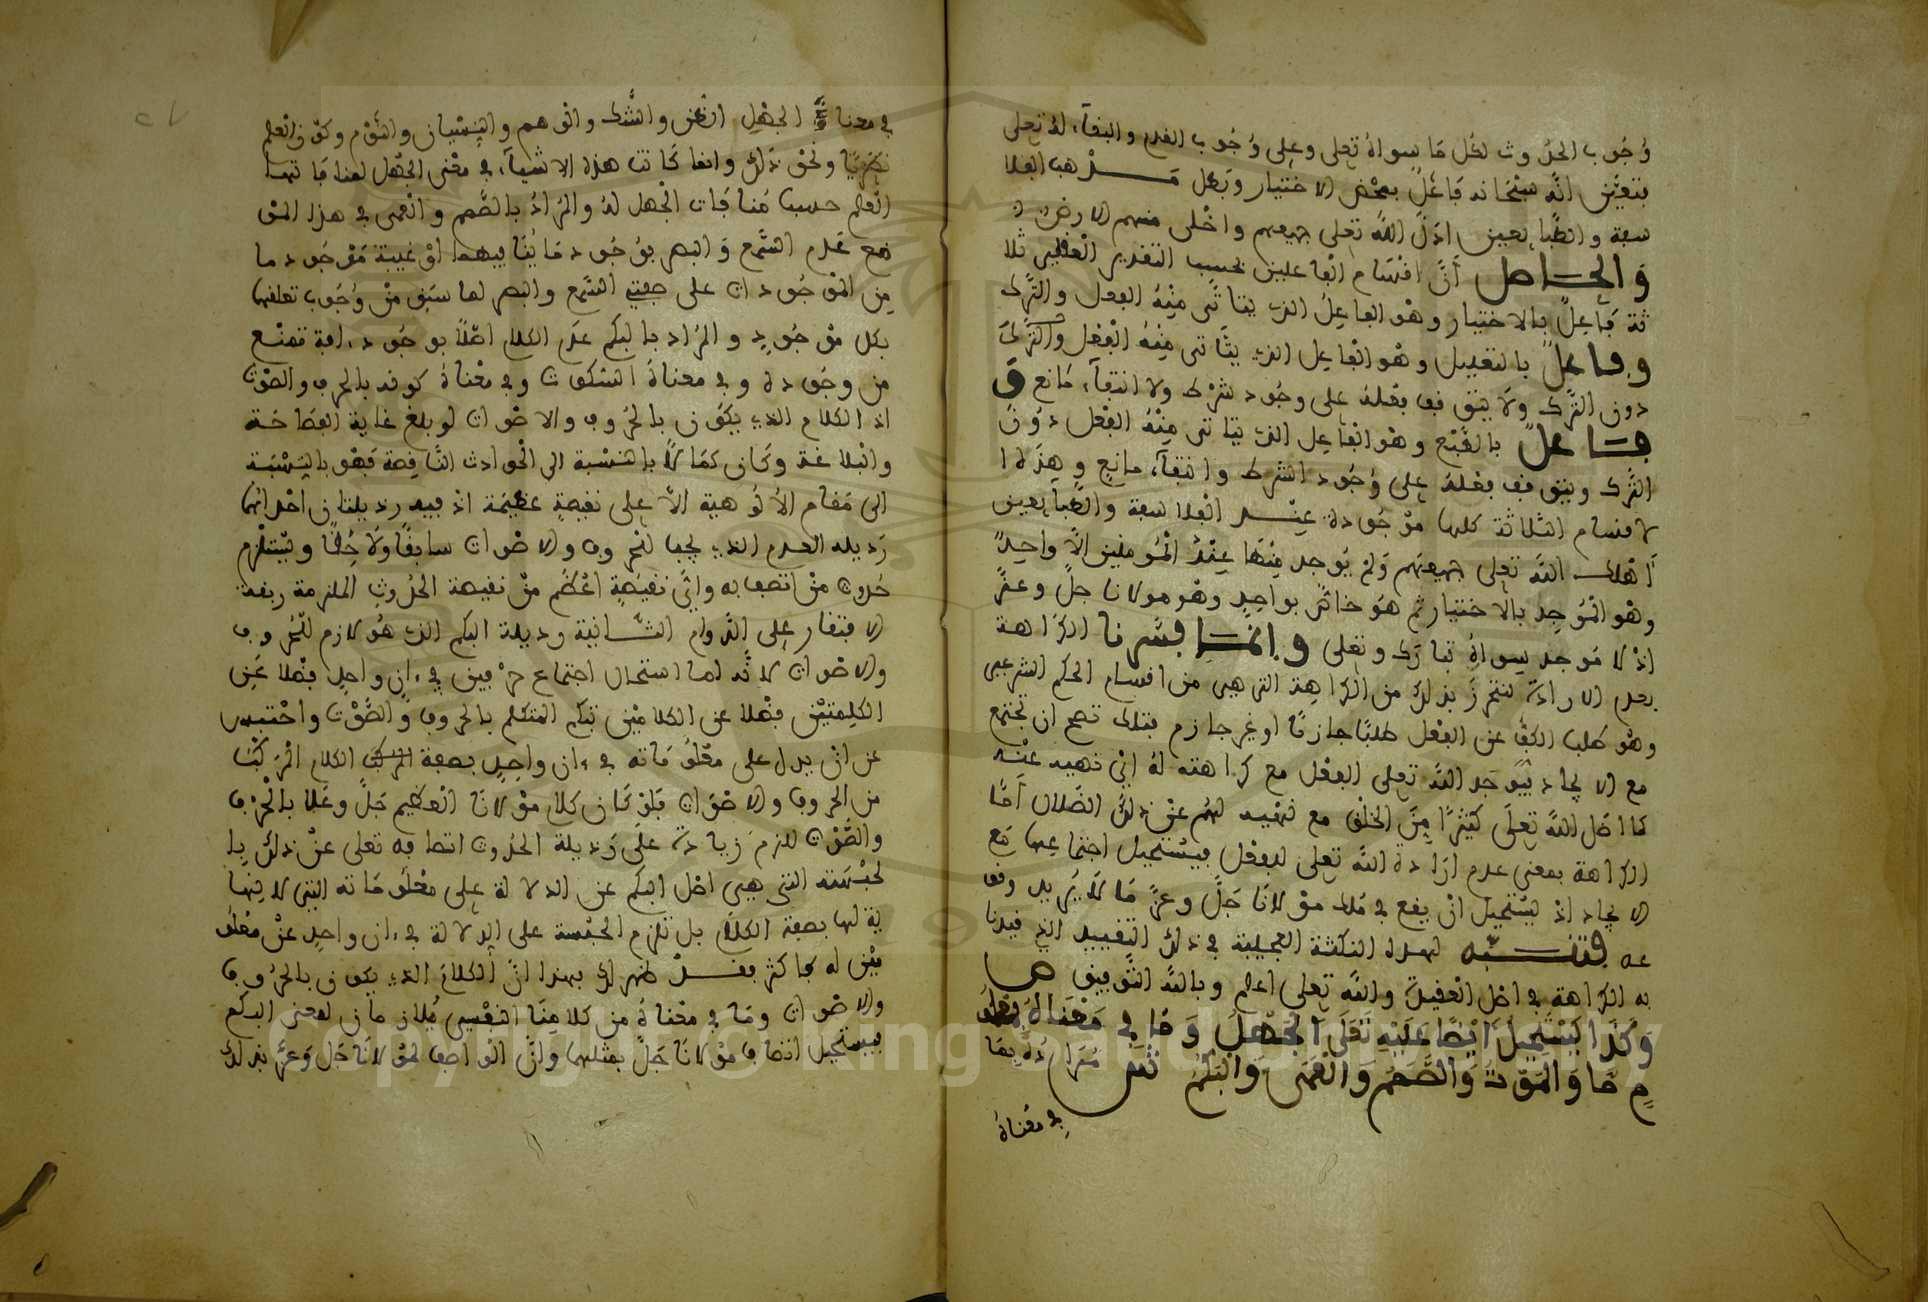 وجوب الحدوث لكل ما سواه تعلى وعلى وجوب القدم والبقاء له تعلى
بتعين انه سبحانه فاعل بمحض الاختيار وبطل مذهب الفلا
سفة والطبايعين اذل الله تعلى جميعهم واخلى منهم الارض
والحاصل أن اقسام الفاعلين بحسب التقدير العقلي ثلا
ثة فاعل بالاختيار وهو الفاعل الذي يتاتى منه الفعل والترك
وفاعل بالتعليل وهو الفاعل الذي يتاتى منه الفعل
دون الترك ولا يتوقف فعله على وجود شرط ولا انتفاء مانع و
فاعل بالطبع وهو الفاعل الذي يتاتى منه الفعل دون
الترك ويتوقف فعله على وجود الشرط وانتفاء مانع وهذه ا
لاقسام الثلاثة كلها موجودة عند الفلاسفة والطبايعين
أهلك الله تعلى جميعهم ولم يوجد منها عند المومنين الا واحد
وهو الموجد بالاختيار ثم هو خاص بواحد وهو مولانا جل وعز
اذ لا موجد سواه تبارك وتعلى وانما فسرنا الكراهة
بعدم الارادة لنتحرز بذلك من الكراهة التي هي من اقسام الحكم الشرعي
وهو طلب الكف عن الفعل طلبا جازما او غير جازم فتلك تصح ان تجتمع
مع الايجاد فيوجد الله تعلى الفعل مع كراهته له اي نهيه عنه
كما اضل الله تعلى كثيرا من الخلق مع نهيه لهم عن ذلك الضلال أما
الكراهة بمعنى عدم ارادة الله تعلى للفعل فيستحيل اجتماعها مع
الايجاد اذ يستحيل ان يقع في ملك مولانا جل وعز ما لا يريد وقو
عه فتنبه لهذه النكتة العجيبة في ذلك التقييد الذي قيدنا
به الكراهة في اصل العقيدة والله تعلى اعلم وبالله التوفيق ص
وكذا يستحيل أيضا عليه تعلى الجهل وما في معناه بمعلو
م ما والموت والصمم والعمى والبكم ش مراده بما
في معناه
في معنا الجهل الظن والشك والوهم والنسيان والنوم وكون العلم
نظريا ونحو ذلك وانما كانت هذه الاشياء في معنى الجهل لمنافاتها
العلم حسب منافات الجهل له والمراد بالصمم والعمى في هذا المو
ضع عدم السمع والبصر بوجود ما ينافيهما او غيبة موجود ما
من الموجودات على صفتي السمع والبصر لما سبق من وجوب تعلقها
بكل موجود والمراد بالبكم عدم الكلام اصلا بوجود ءافة تمنع
من وجوده وفي معناه السكوت وفي معناه كونه بالحرف والصوت
اذ الكلام الذي يكون بالحروف والاصوات لو بلغ غاية الفصاحة
والبلاغة وكان كمالا بالنسبة الى الحوادث الناقصة فهو بالنسبة
الى مقام الالوهية الاعلى نقيصة عظيمة اذ فيه رذيلتان احداهما
رذيله العدم الذي يجب للحروف والاصوات سابقا ولاحقا ويستلزم
حدوث من اتصف به واي نقيصة اعظم من نقيصة الحدوث الملزمة ربقة
الافتقار على الدوام الثانية رذيلة البكم الذي هو لازم للحروف
والاصوات لانه لما استحال اجتماع حرفين في ءان واحد فضلا عن
الكلمتين فضلا عن الكلامين تبكم المتكلم بالحروف والصوت واحتبس
عن ان يدل على معلوماته في ءان واحد بصفة الكلام المركب
من الحروف والاصوات فلو كان كلام مولانا العظيم جل وعلا بالحرف
والصوت للزم زيادة على رذيلة الحدوث اتصافه تعلى عن ذلك با
لحبسة التي هي اصل البكم عن الدلالة على معلوماته التي لا نها
ية لها بصفة الكلام بل تلزم الحبسة على الدلالة في ءان واحد عن معلو
مين له فاكثر فقد ظهر لك بهذا ان الكلام الذي يكون بالحروف
والاصوات وما في معناه من كلامنا النفسي ملازمان لمعنى البكم
فيستحيل اتصاف مولانا جل بمثلها وان الواصف لمولانا جل وعز بذلك